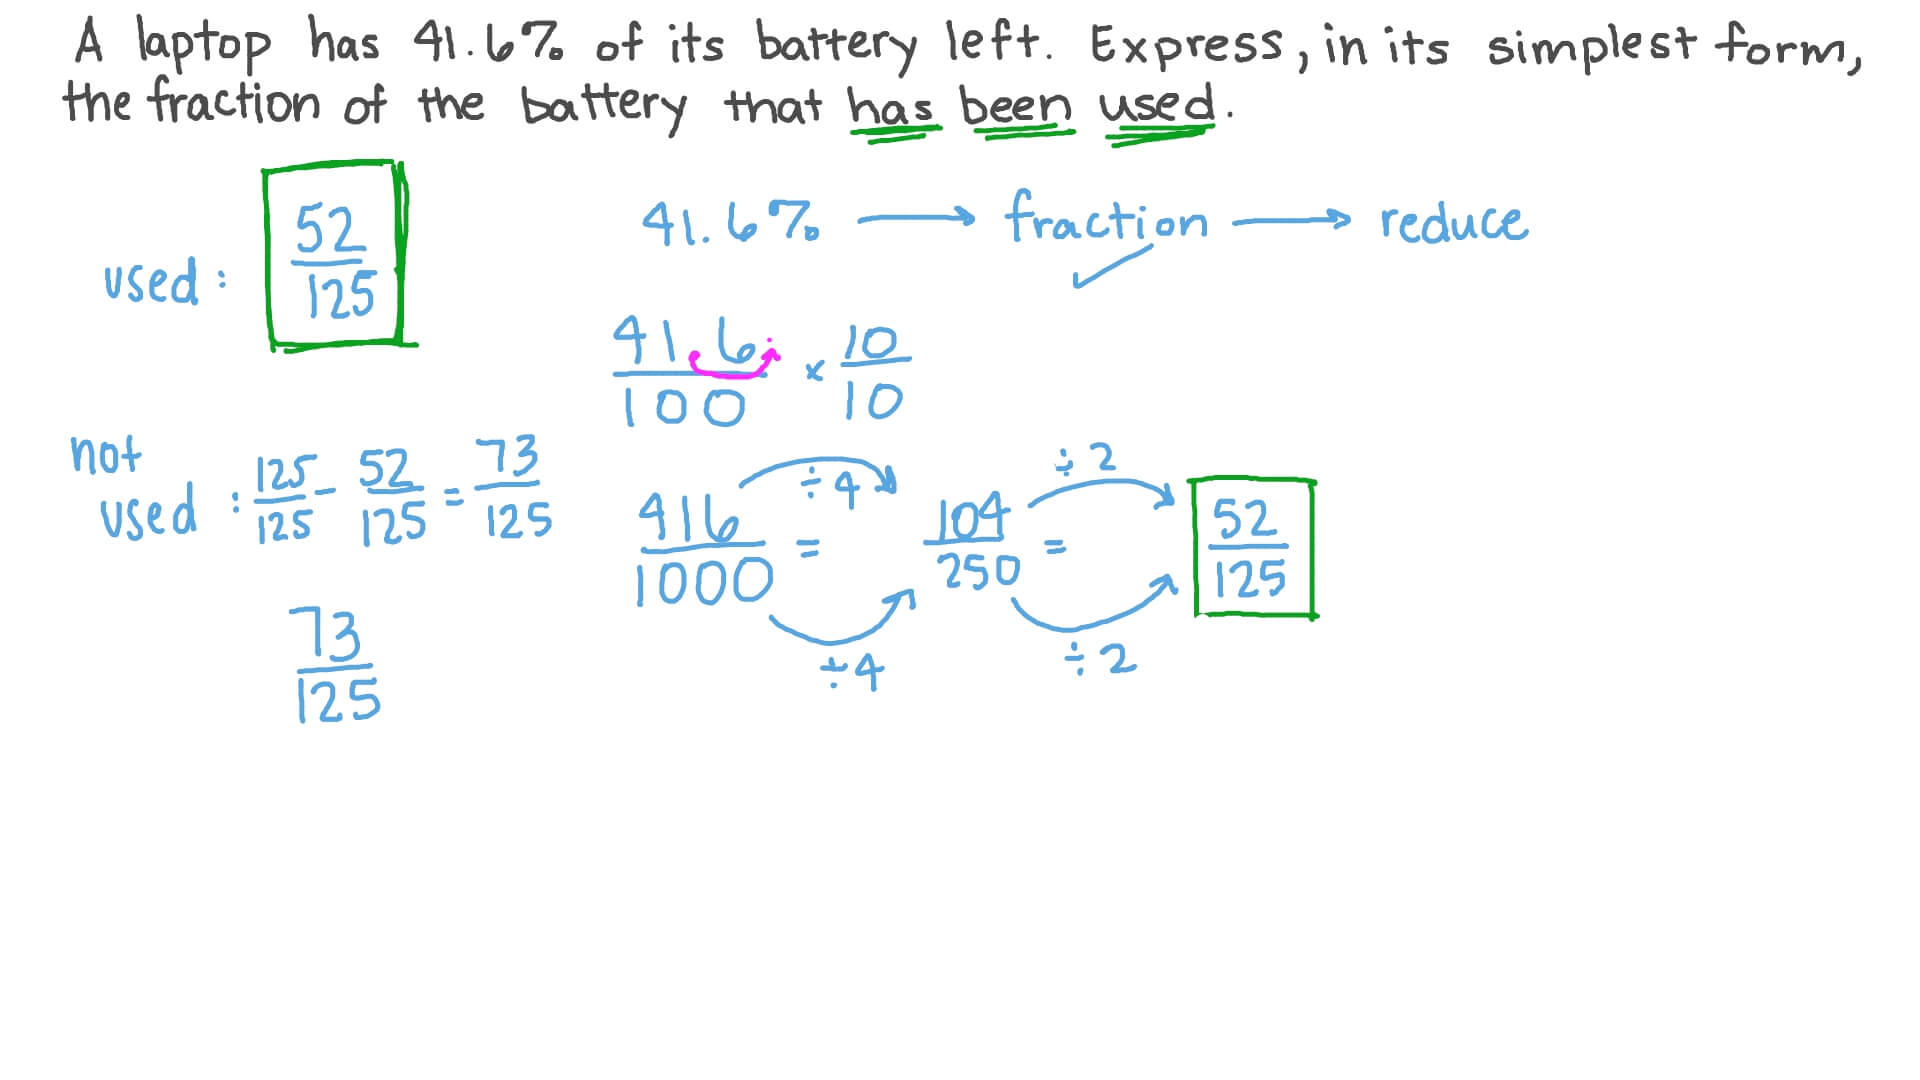 A laptop has 41.6% of its battery left. Express, in its simplest form,
the fraction of the battery that has been used.
used: 52/125
41.6% → fraction → reduce
41.6/100 × 10/10
not
used: 125/125 - 52/125 = 73/125
73/125
÷4 ÷2
416/1000 = 104/250 = 52/125
÷4 ÷2